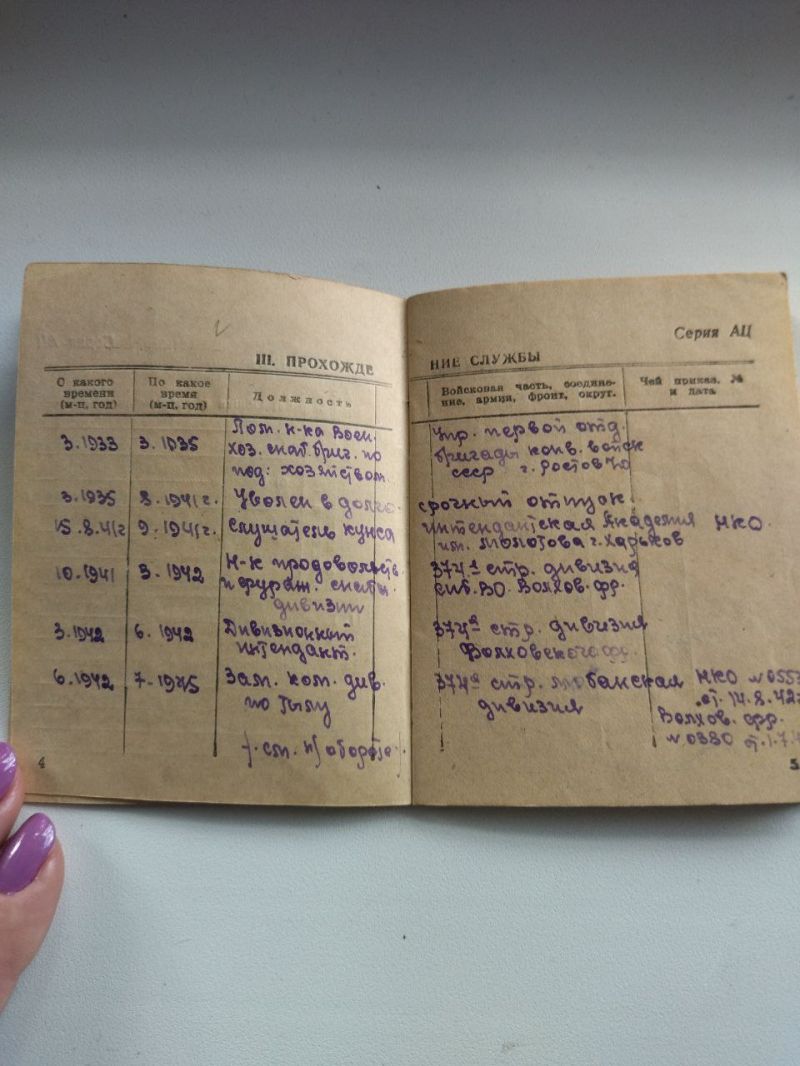 Серия АЦ
III. ПРОХОЖДЕ НИЕ СЛУЖБЫ
С какого времени (м-ц, год)
По какое время (м-ц, год)
Должность
Войсковая часть, соедине-
ние, армия, фронт, округ.
Чей приказ, №
и дата
3.1933 3.1935
Пом. н-ка Воен.
хоз. снаб. бриг. по
под: хозяйством
Упр. первой отд.
бригады конв. войск
СССР г. Ростов
3.1935 8.1941г. Уволен в долго
срочный отпуск.
15.8.41г 9.1941г. Слушатель курса
интендантская Академия НКО
им. Молотова г. Харьков
10.1941 3.1942
Н-к продовольств.
и фураж. снабж.
дивизии
374-я стр. дивизия
Сиб. ВО. Волхов. фр.
3.1942 6.1942
Дивизионный
интендант.
374я стр. дивизия
Волховского фр.
6.1942 7-1945
Зам. ком. див.
по тылу
374я стр. Любанская
дивизия
НКО №
от. 14.8.42г
Волхов. фр.
№ 0380
см. н/обороте
4
5